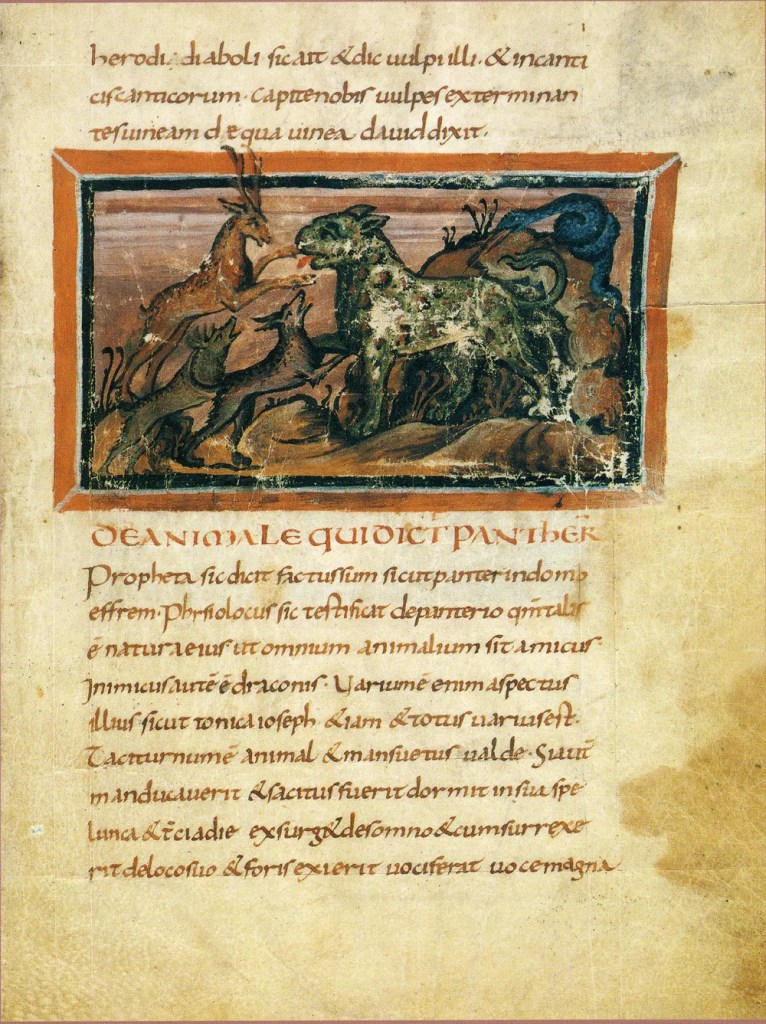 herodi. diaboli sicait &dic uulpi illi· &incanti
ciscanticorum· capitenobis uulpes exterminan
tesuineam dequa uinea dauid dixit·
DEANIMALEQUIDICTPANTHER
Propheta sic dicit factussum sicutpanterindomo
effrem· Phisiolocus sic testificat depanterio qm̄talis
ē naturaeius ut omnium animalium sit amicus·
Inimicusautē ē draconis· Uariumē enim aspectus
illius sicut tonicaioseph &iam &totus uariusest·
Taciturnumē animal &mansuetus ualde· Siaut̄
manducauerit &saciatusfuerit dormit insua spe
lunca &t̄ciadie exsurg&desomno &cumsurrexe
rit delocosuo &forisexierit uociferat uocemagna